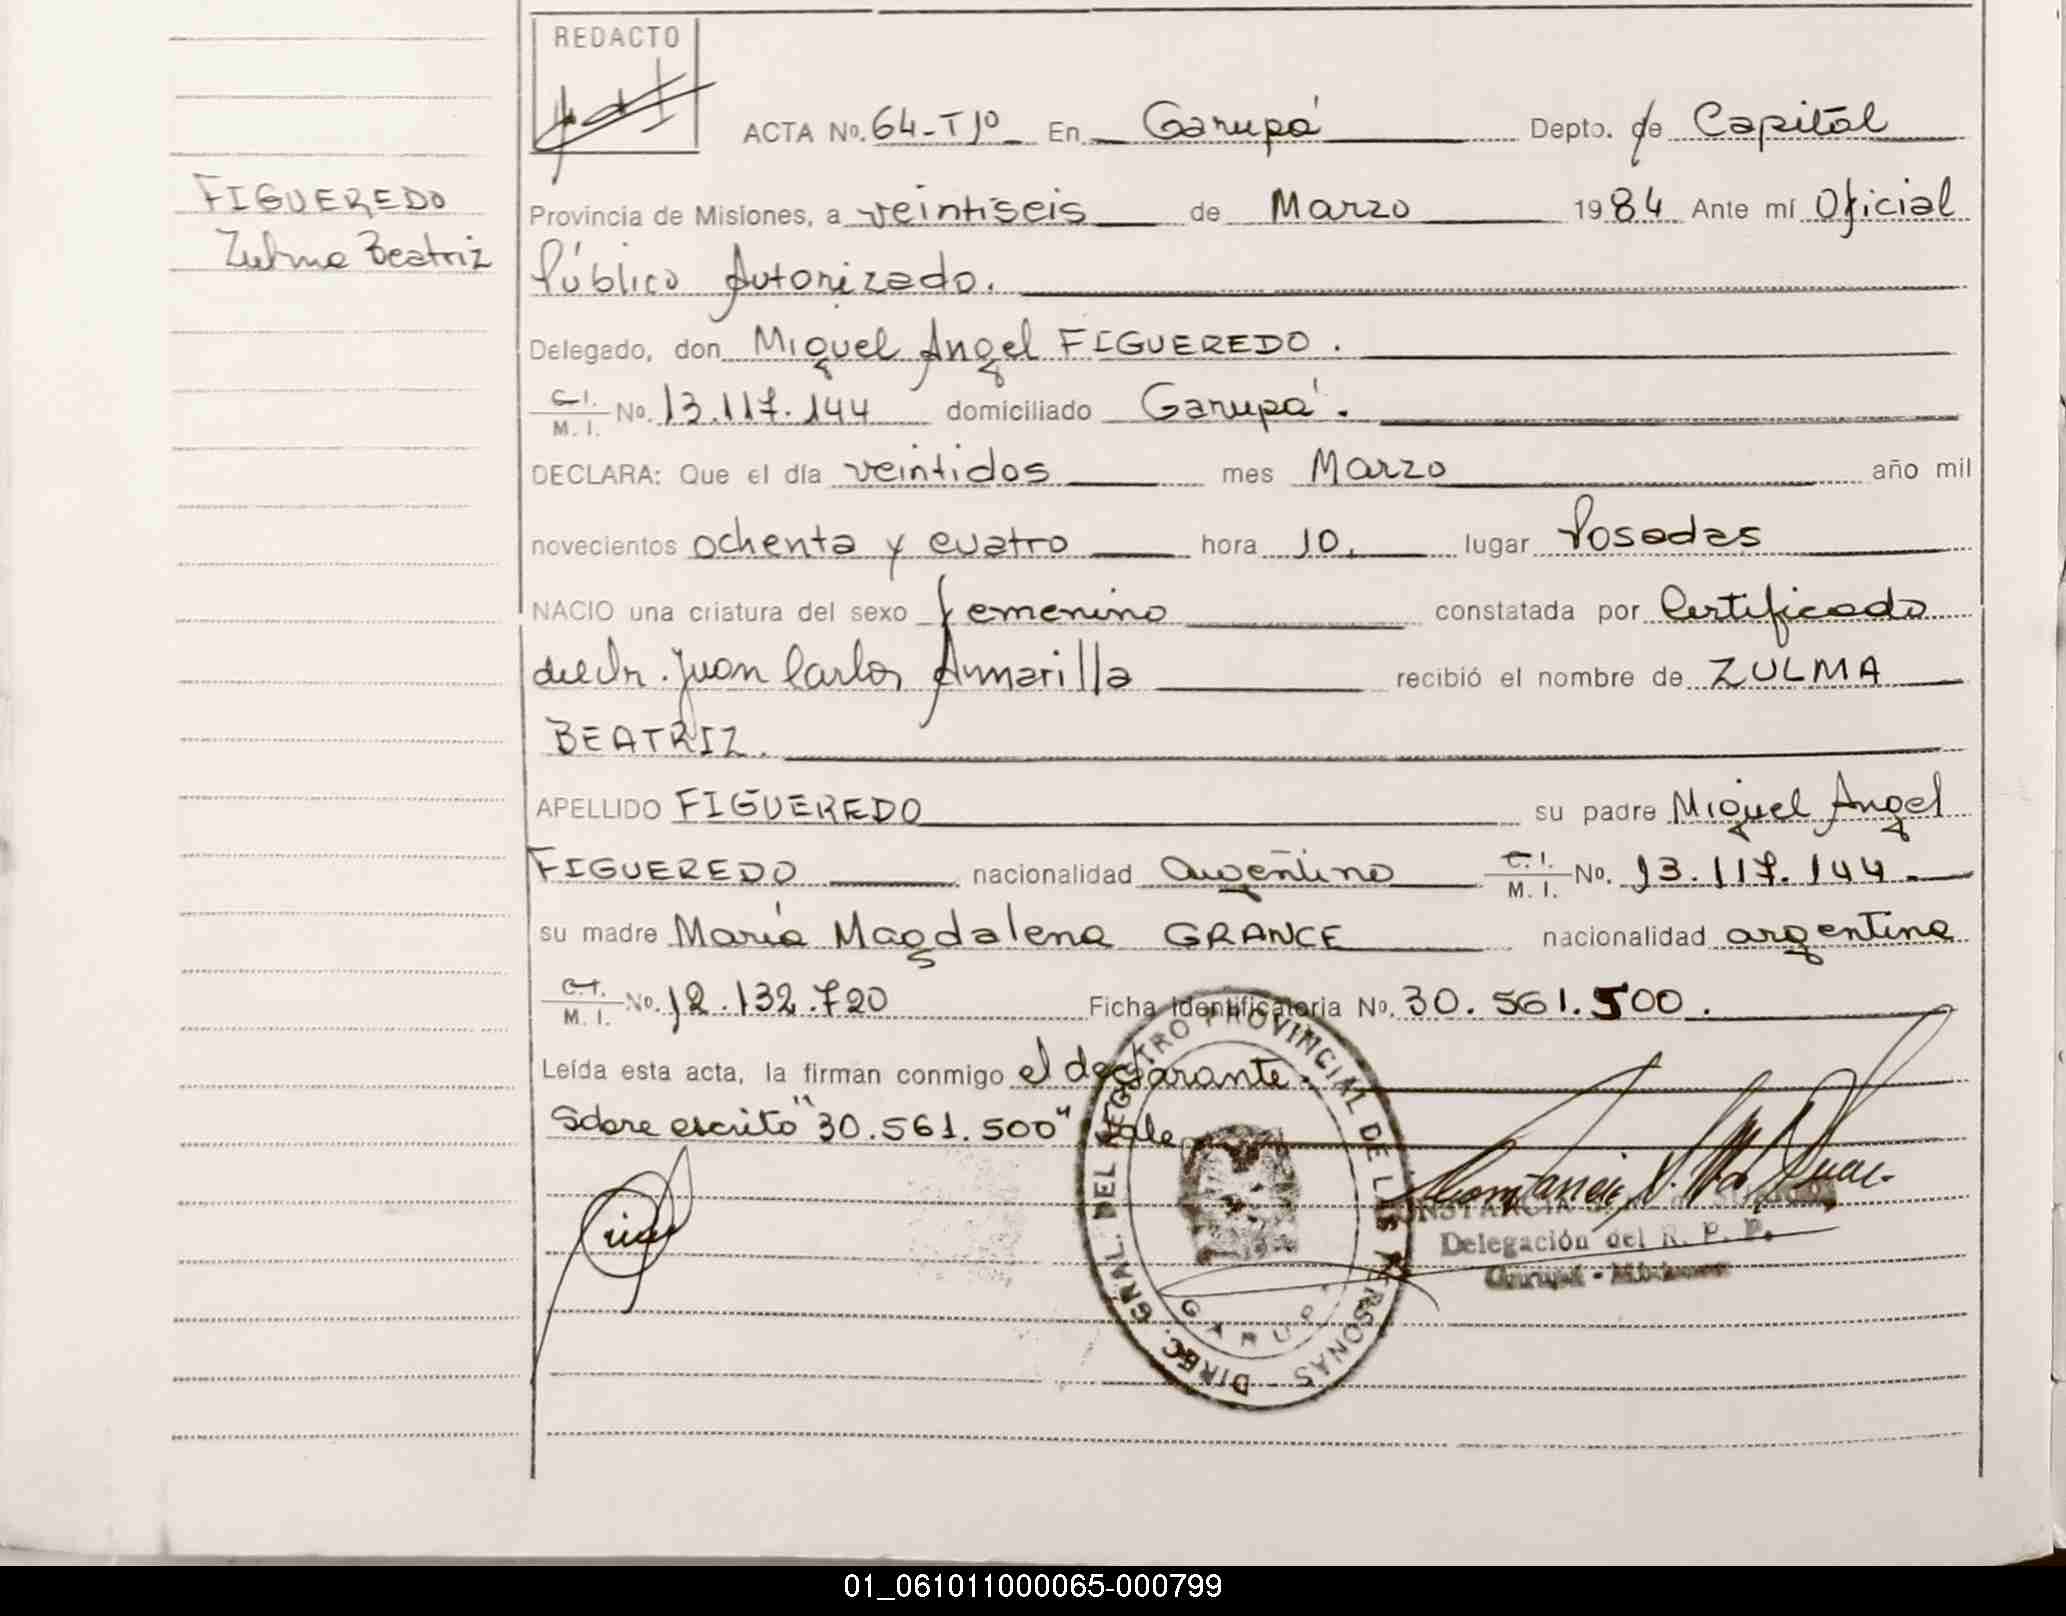 REDACTO
ACTA No. 64-Tº1º En Garupá Depto. de Capital
FIGUEREDO
Zulma Beatriz
Provincia de Misiones, a veintiseis de Marzo 1984 Ante mí Oficial
Público Autorizado.
Delegado, don Miguel Angel FIGUEREDO.
C.I. M.I. No. 13.117.144 domiciliado Garupá.
DECLARA: Que el día veintidos mes Marzo año mil
novecientos ochenta y cuatro hora 10, lugar Posadas
NACIO una criatura del sexo femenino constatada por Certificado
del Dr. Juan Carlos Amarilla recibió el nombre de ZULMA
BEATRIZ.
APELLIDO FIGUEREDO su padre Miguel Angel
FIGUEREDO nacionalidad argentino C.I. M.I. No. 13.117.144.
su madre María Magdalena GRANCE nacionalidad argentina
C.I. M.I. No. 12.132.720 Ficha identificatoria No. 30.561.500.
Leída esta acta, la firman conmigo el declarante.
Sobre escrito "30.561.500" Vale
DIREC. GRAL. DEL REGISTRO PROVINCIAL DE LAS PERSONAS
GARUPA
Delegación del R. P. P.
Garupá - Misiones
01_061011000065-000799